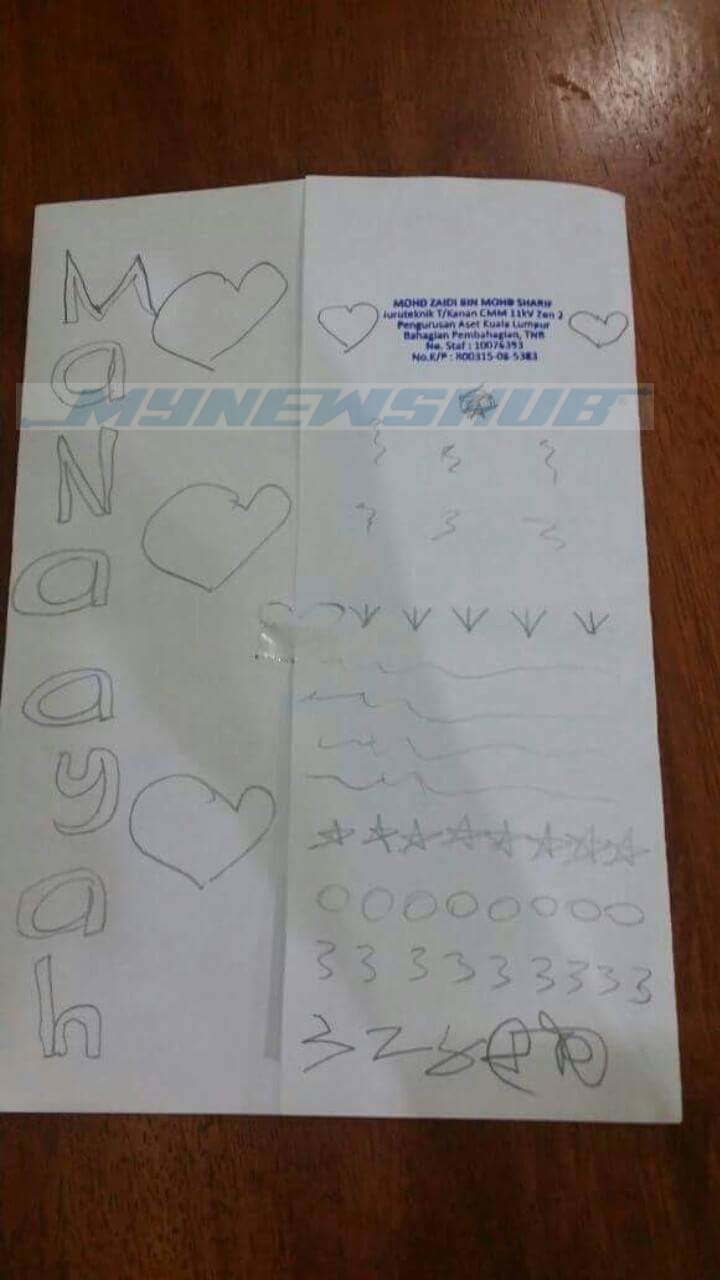 MaNa ayah
MOHD ZAIDI BIN MOHD SHARIF
Juruteknik T/Kanan CMM 11kV Zon 2
Pengurusan Aset Kuala Lumpur
Bahagian Pembahagian, TNB
No. Staf : 10076393
No.K/P : 800315-08-5383
MYNEWSHUB
3 3 3 3 3 3 3 3 3